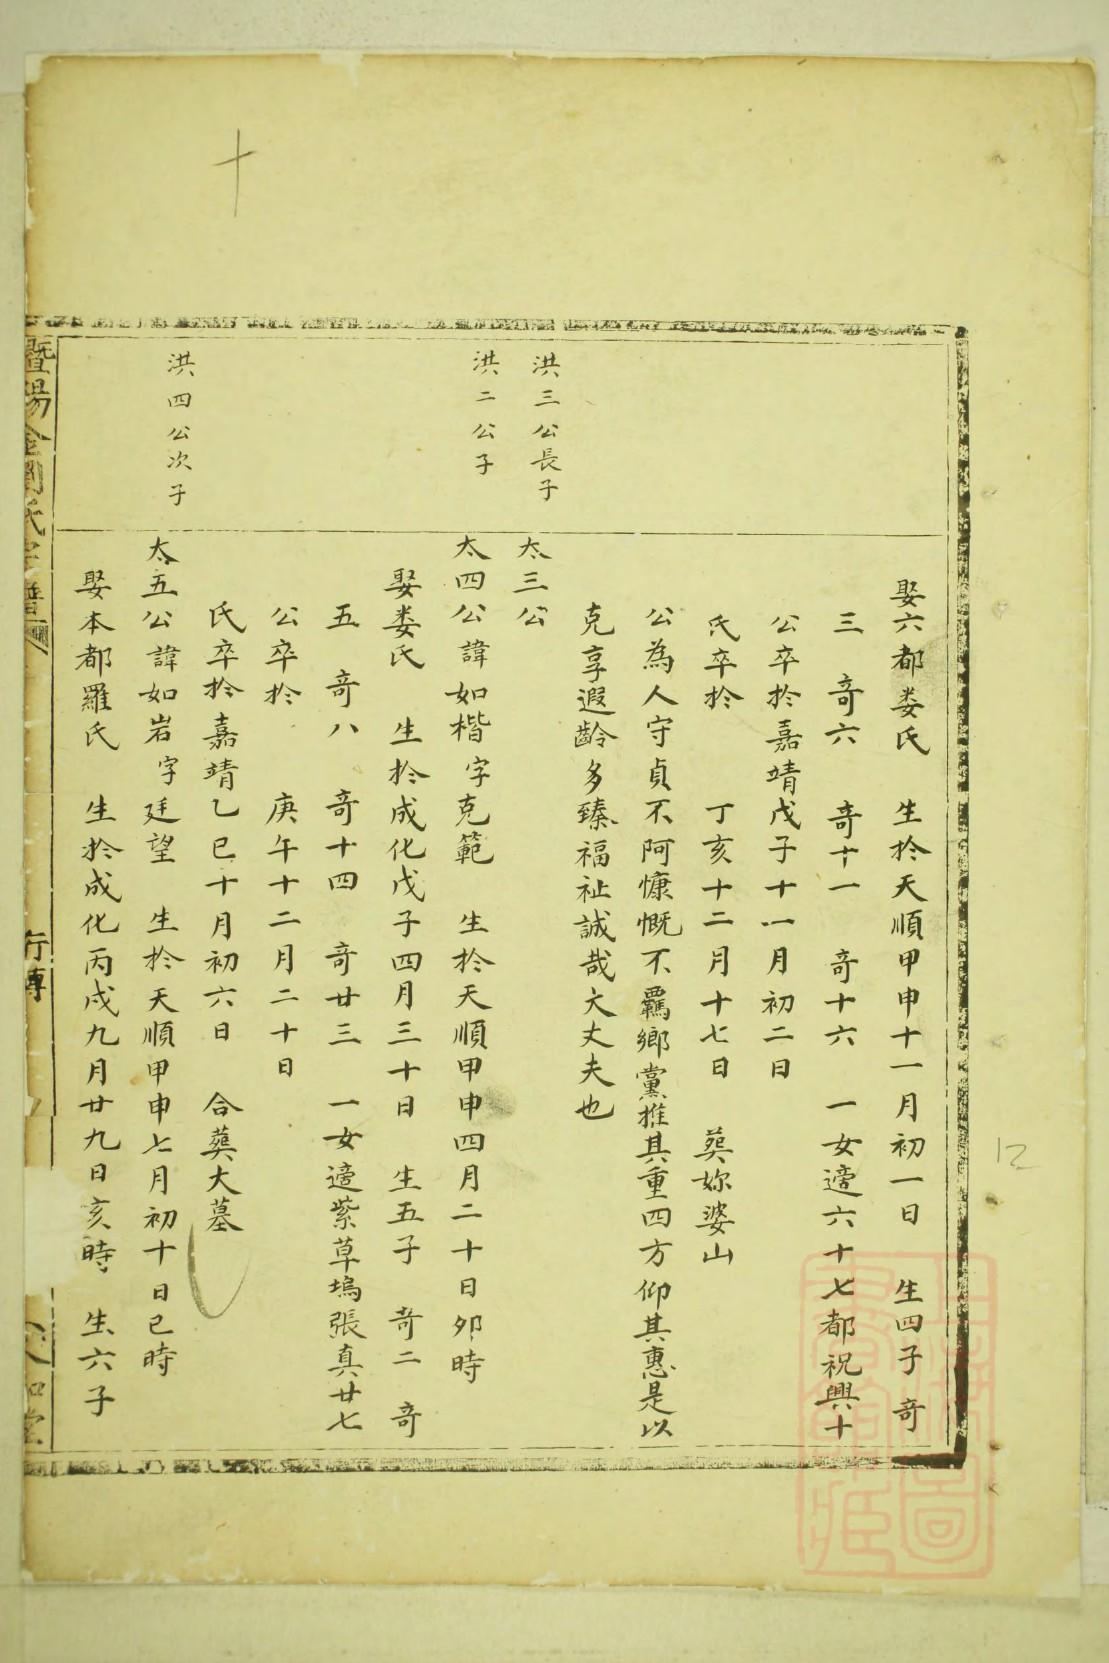 娶六都娄氏　生於天順甲申十一月初一日　生四子　奇
三　奇六　奇十一　奇十六　一女適六十七都祝興十
公卒於嘉靖戊子十一月初二日
氏卒於　丁亥十二月十七日　葬妳婆山
公為人守貞不阿慷慨不羈鄉黨推其重四方仰其惠是以
克享遐齡多臻福祉誠哉大丈夫也
洪三公長子
太三公
洪二公子
太四公諱如楷字克範　生於天順甲申四月二十日卯時
娶娄氏　生於成化戊子四月三十日　生五子　奇二　奇
五　奇八　奇十四　奇廿三　一女適紫草塢張真廿七
公卒於　庚午十二月二十日
氏卒於嘉靖乙巳十月初六日　合葬大墓
洪四公次子
太五公諱如岩字廷望　生於天順甲申七月初十日巳時
娶本都羅氏　生於成化丙戌九月廿九日亥時　生六子
暨陽金氏宗譜
行傳
堂
十
12
圖